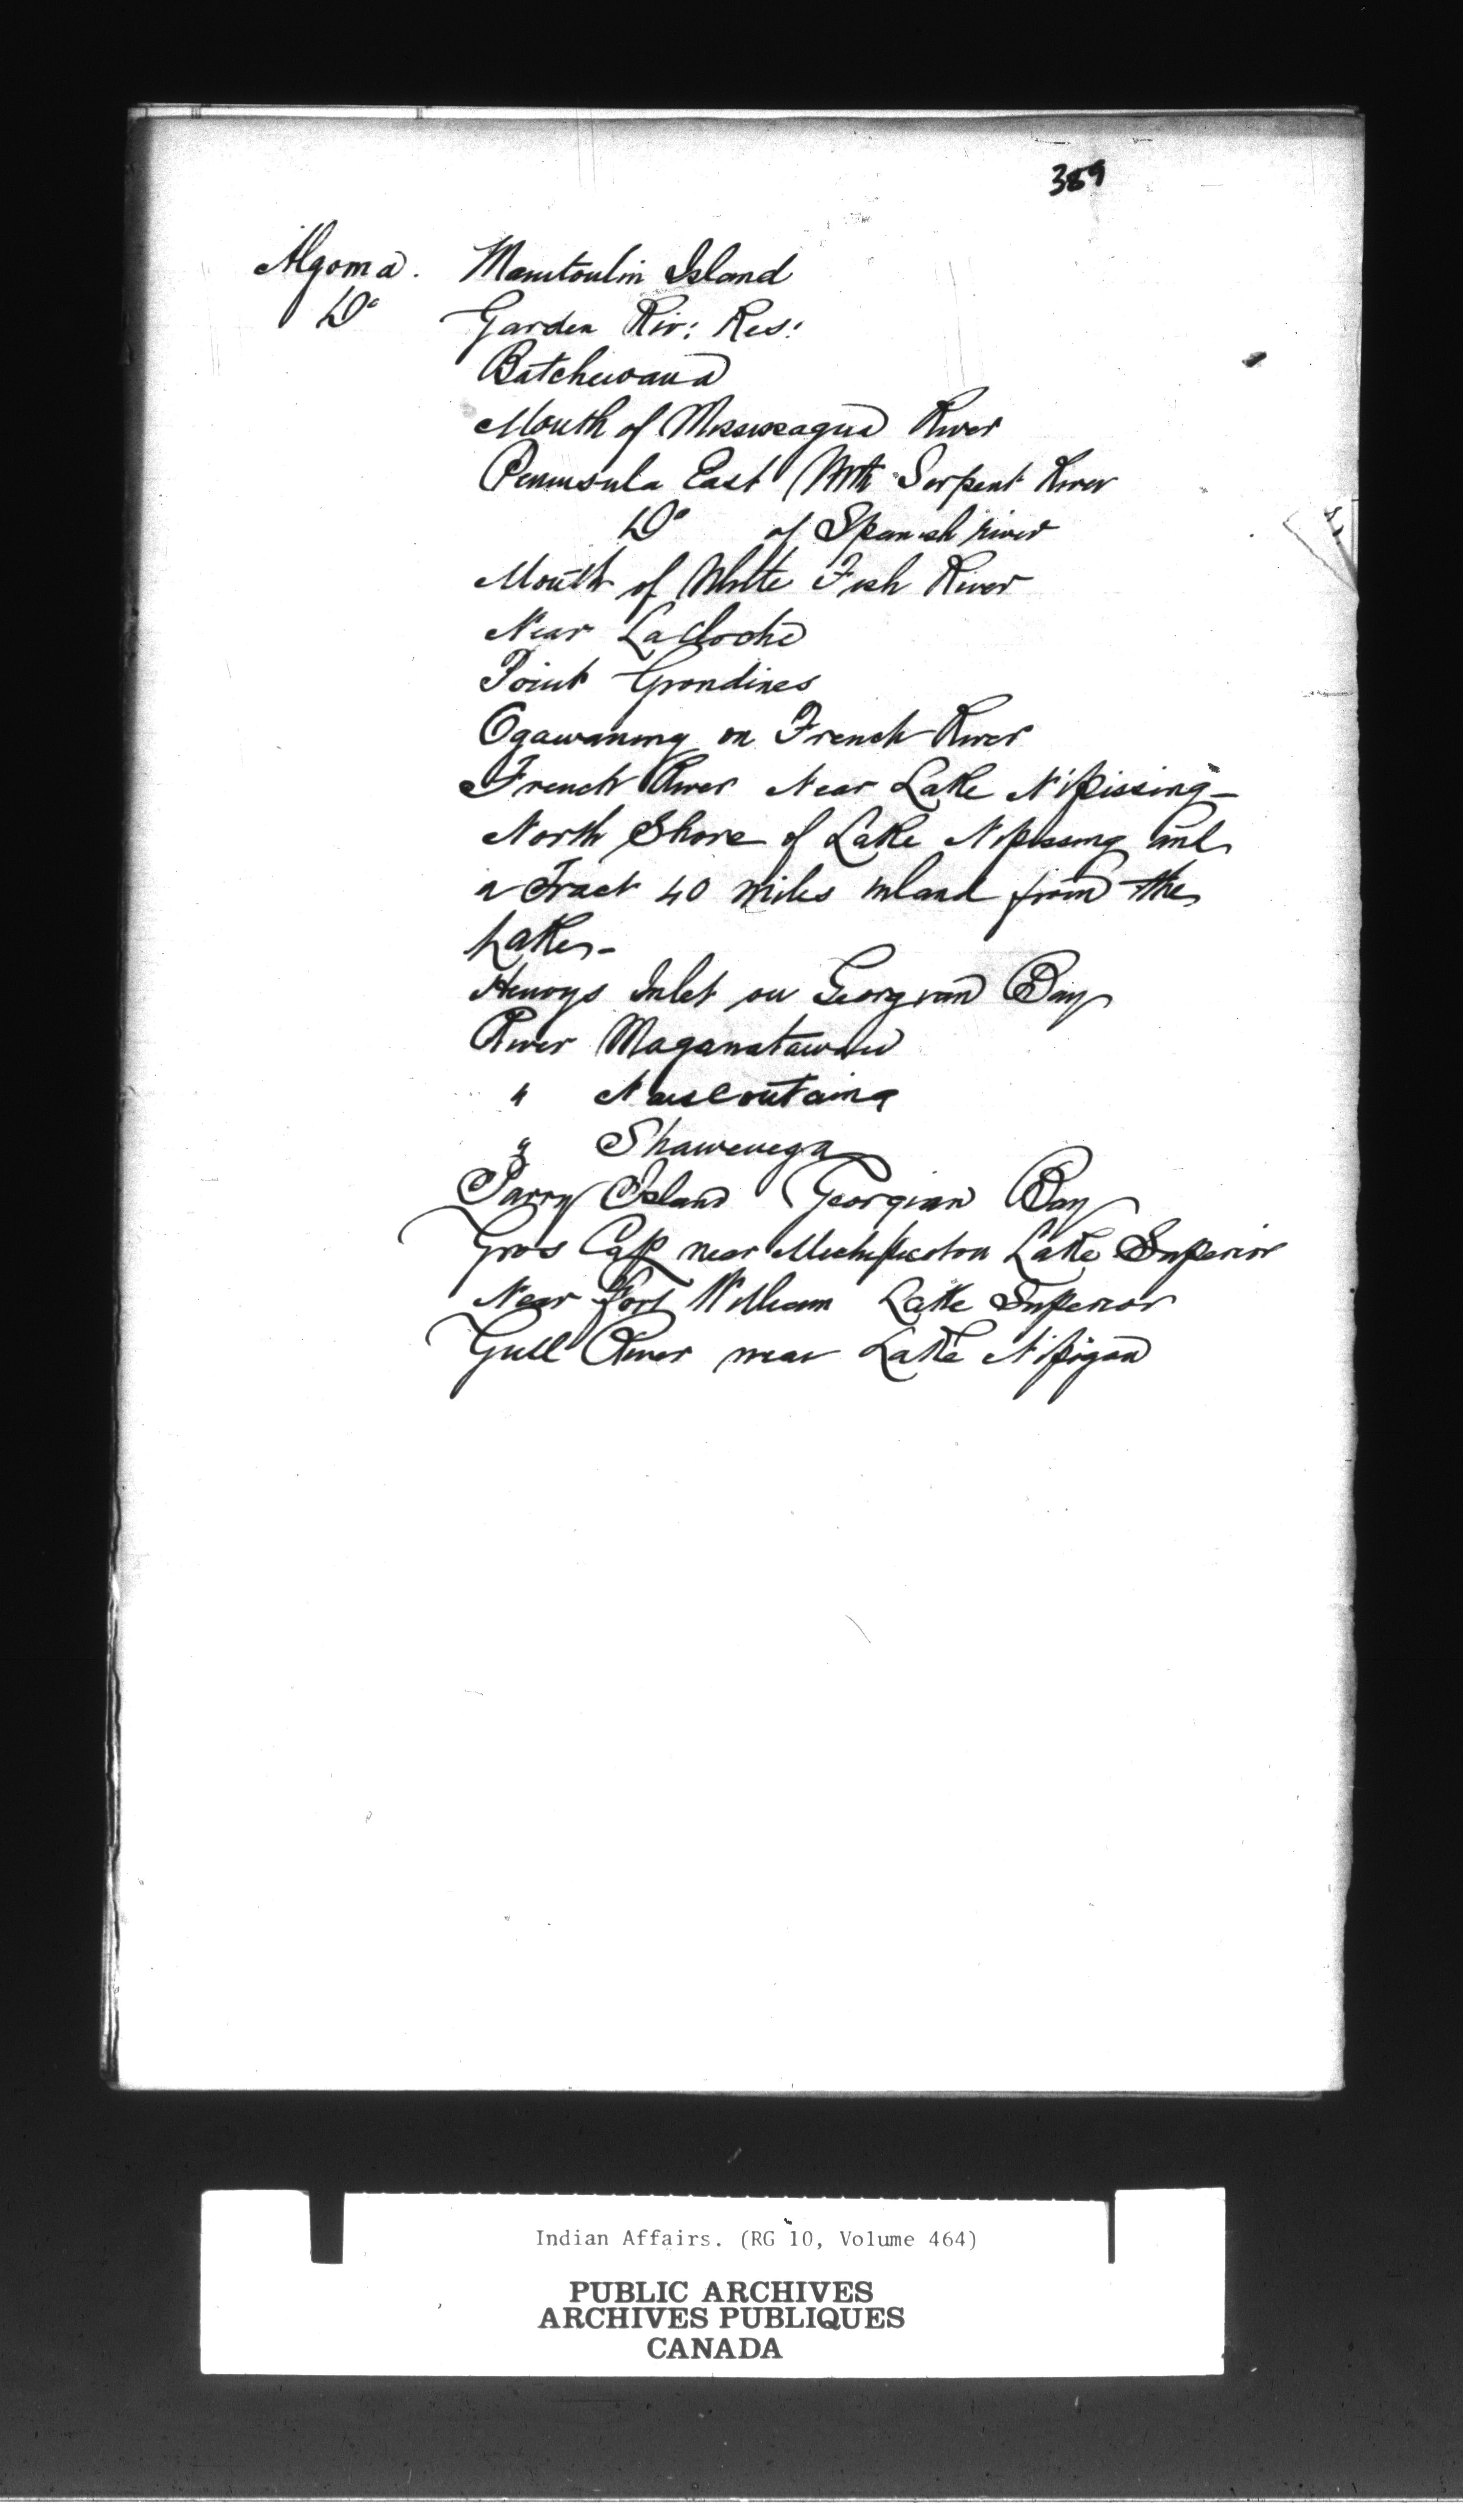 389
Algoma. Manitoulin Island
Do Garden Riv: Res:
Batchewana
Mouth of Mississagua River
Peninsula East Mth Serpent River
Do of Spanish river
Mouth of White Fish River
Near LaCloche
Point Grondines
Ogawaming on French River
French River Near Lake Nipissing-
North Shore of Lake Nipissing and
a Tract 40 miles inland from the
Lake-
Henvys Inlet on Georgian Bay
River Maganatawan
" Naiscoutaing
" Shawenega
Parry Island Georgian Bay
Gros Cap near Michipicoton Lake Superior
Near Fort William Lake Superior
Gull River near Lake Nipigon
Indian Affairs. (RG 10, Volume 464)
PUBLIC ARCHIVES
ARCHIVES PUBLIQUES
CANADA